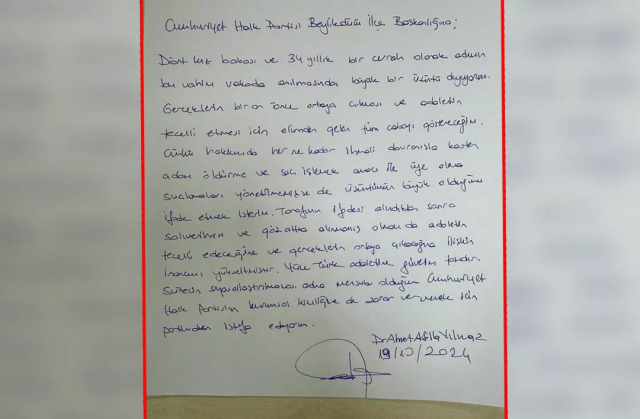 Cumhuriyet Halk Partisi Beylikdüzü İlçe Başkanlığına;
Dört kız babası ve 34 yıllık bir cerrah olarak adımın
bu vahim vakada anılmasından büyük bir üzüntü duyuyorum.
Gerçeklerin bir an önce ortaya çıkması ve adaletin
tecelli etmesi için elimden gelen tüm çabayı göstereceğim.
Çünkü hakkımda her ne kadar ihmali davranışla kasten
adam öldürme ve suç işlemek amacı ile üye olma
suçlamaları yöneltilmemişse de üzüntümün büyük olduğunu
ifade etmek isterim. Tarafımın ifadesi alındıktan sonra
salıverilmem ve gözaltına alınmamış olmam da adaletin
tecelli edeceğine ve gerçeklerin ortaya çıkacağına ilişkin
inancımı yükseltmiştir. Yüce Türk adaletine güvenim tamdır.
Sürecin siyasallaştırılmaması adına mensubu olduğum Cumhuriyet
Halk Partisinin kurumsal kimliğine de zarar vermemek için
partimden istifa ediyorum.
Dr. Ahmet Atilla Yılmaz
19/10/2024